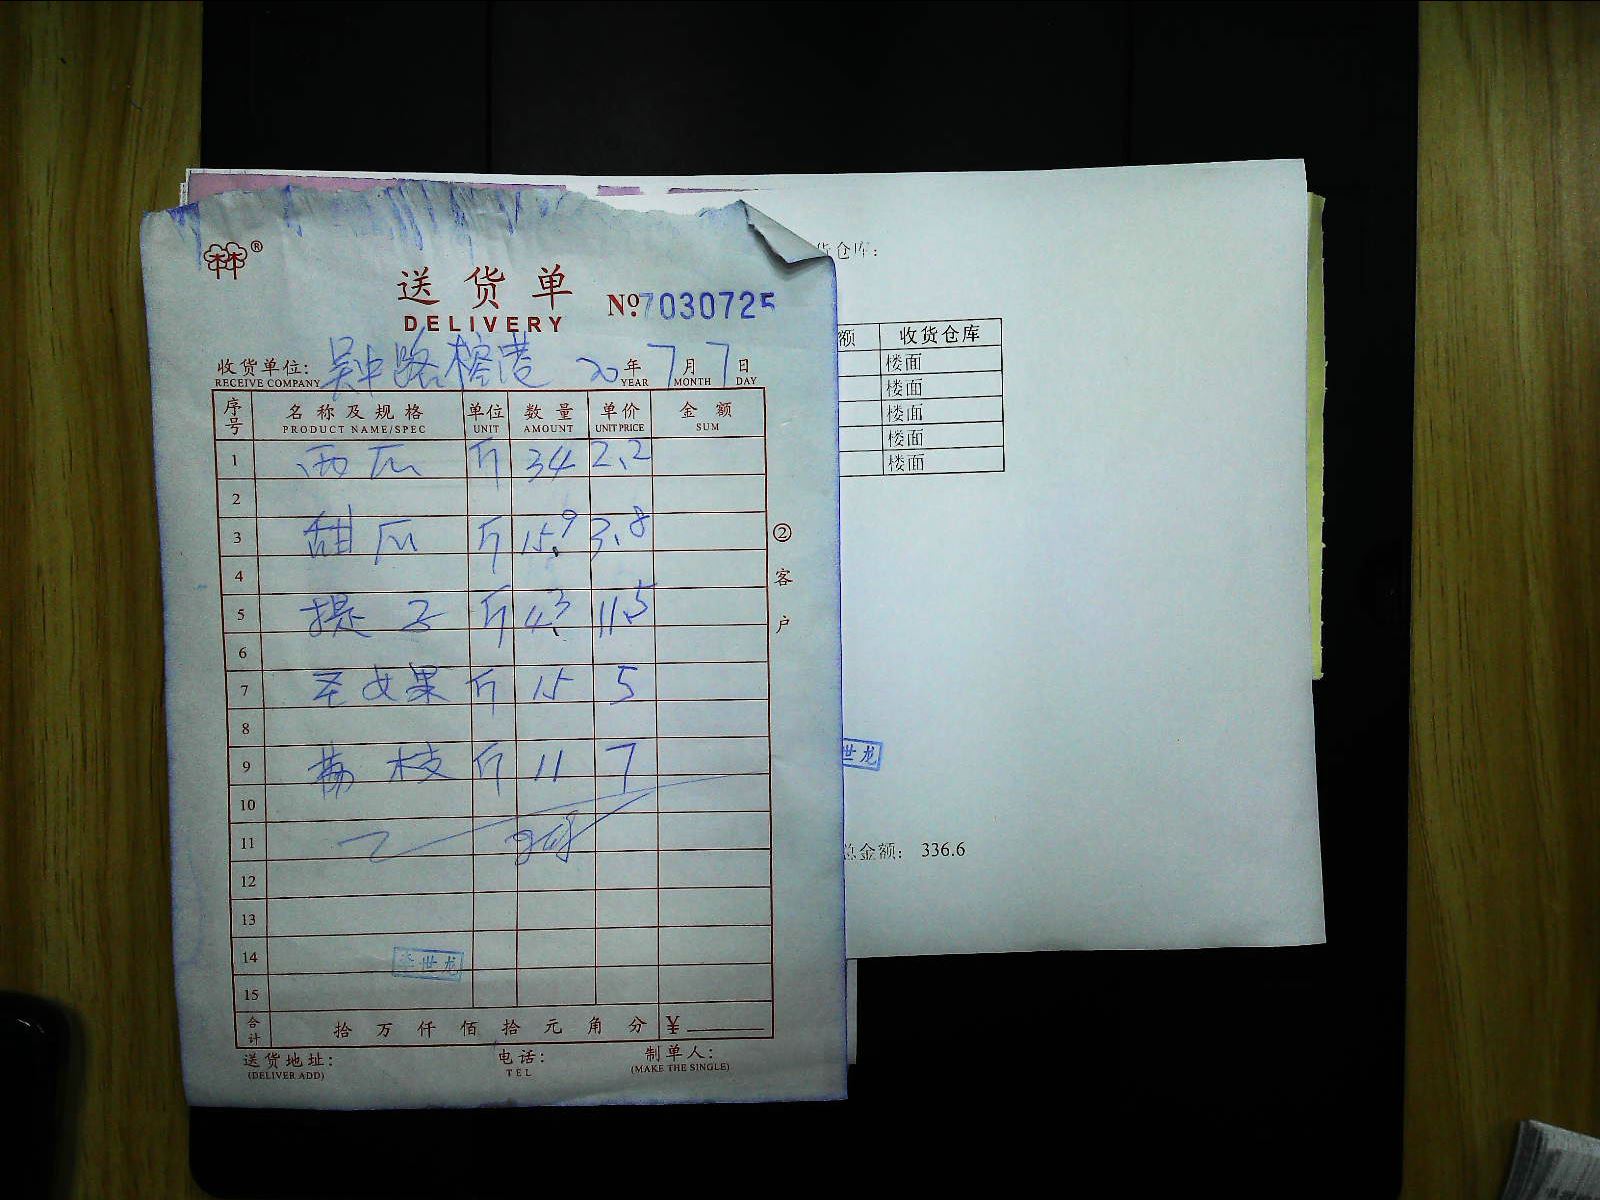 林林®
送货单
DELIVERY
№7030725
收货单位: 吴中路榕港 20年7月7日
RECEIVE COMPANY YEAR MONTH DAY
序号 名称及规格 单位 数量 单价 金额
PRODUCT NAME/SPEC UNIT AMOUNT UNIT PRICE SUM
1 西瓜 斤 34 2.2
2
3 甜瓜 斤 15.9 3.8
4
5 提子 斤 4.3 11.5
6
7 圣女果 斤 15 5
8
9 荔枝 斤 11 7
10
11
12
13
14 李世龙
15
合计 拾万仟佰拾元角分 ¥
送货地址: 电话: 制单人:
(DELIVER ADD) TEL (MAKE THE SINGLE)
②客户
货仓库:
额 收货仓库
楼面
楼面
楼面
楼面
楼面
世龙
总金额: 336.6